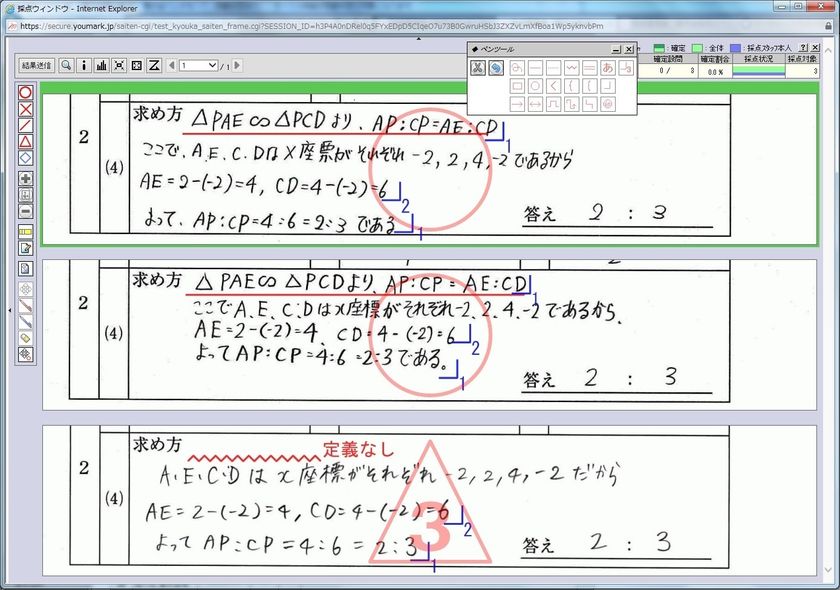 採点ウィンドウ - Internet Explorer
https://secure.youmark.jp/saiten-cgi/test_kyouka_saiten_frame.cgi?SESSION_ID=
結果送信
1
/ 1
ペンツール
あ
:確定
:全体
:採点スタッフ本人
確定設問
確定割合
採点状況
採点対象
0 / 3
0.0 %
3
2
(4)
求め方 △PAE∽△PCDより、AP:CP=AE:CD
1
ここで、A.E.C.DはX座標がそれぞれ -2, 2, 4, -2 であるから
AE=2-(-2)=4, CD=4-(-2)=6
2
よって、AP:CP=4:6=2:3 である
1
答え 2 : 3
2
(4)
求め方 △PAE∽△PCDより、AP:CP = AE:CD
1
ここでA、E、C、Dはx座標がそれぞれ-2、2、4、-2であるから、
AE=2-(-2)=4、CD=4-(-2)=6
2
よってAP:CP=4:6=2:3である。
1
答え 2 : 3
2
(4)
求め方
定義なし
A、E、C、Dはx座標がそれぞれ -2, 2, 4, -2 だから
AE=2-(-2)=4, CD=4-(-2)=6
2
3
よって AP:CP=4:6 = 2:3
1
答え 2 : 3